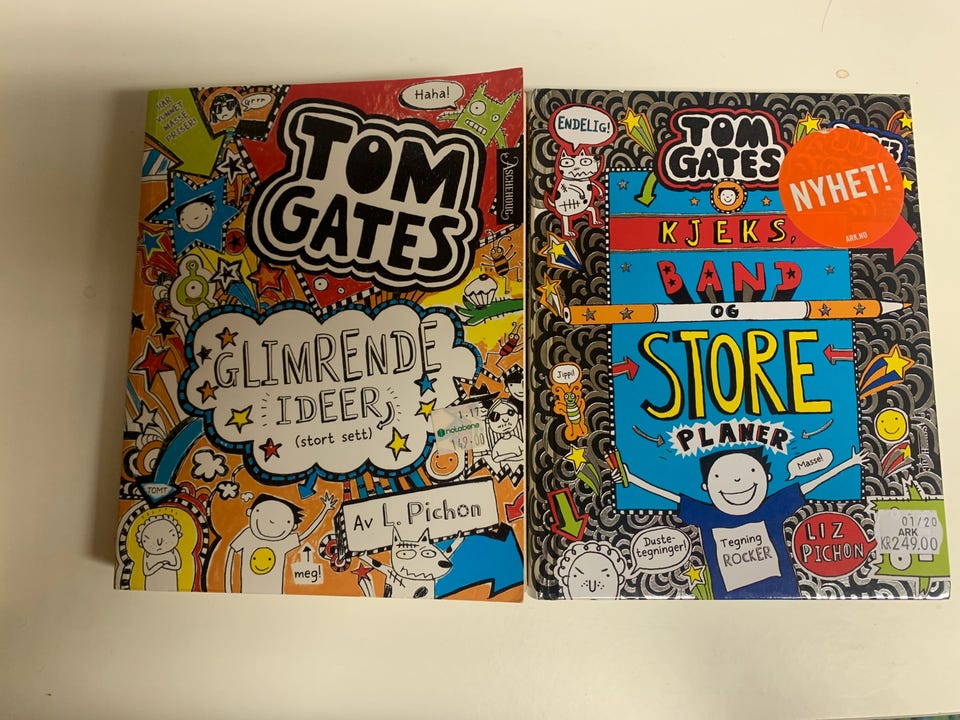 HAR
VUNNET
MASSE
PRISER!
Grrr
Haha!
TOM
GATES
ASCHEHOUG
GLIMRENDE
IDEER
(stort sett)
1.17
notabene
149.00
TOMT
Av L. Pichon
meg!
ENDELIG!
TOM
GATES
NYHET!
ARK.NO
KJEKS,
BAND
OG
STORE
PLANER
Jippi!
Masse!
Duste-
tegninger!
Tegning
ROCKER
LIZ
PICHON
01/20
ARK
KR249.00